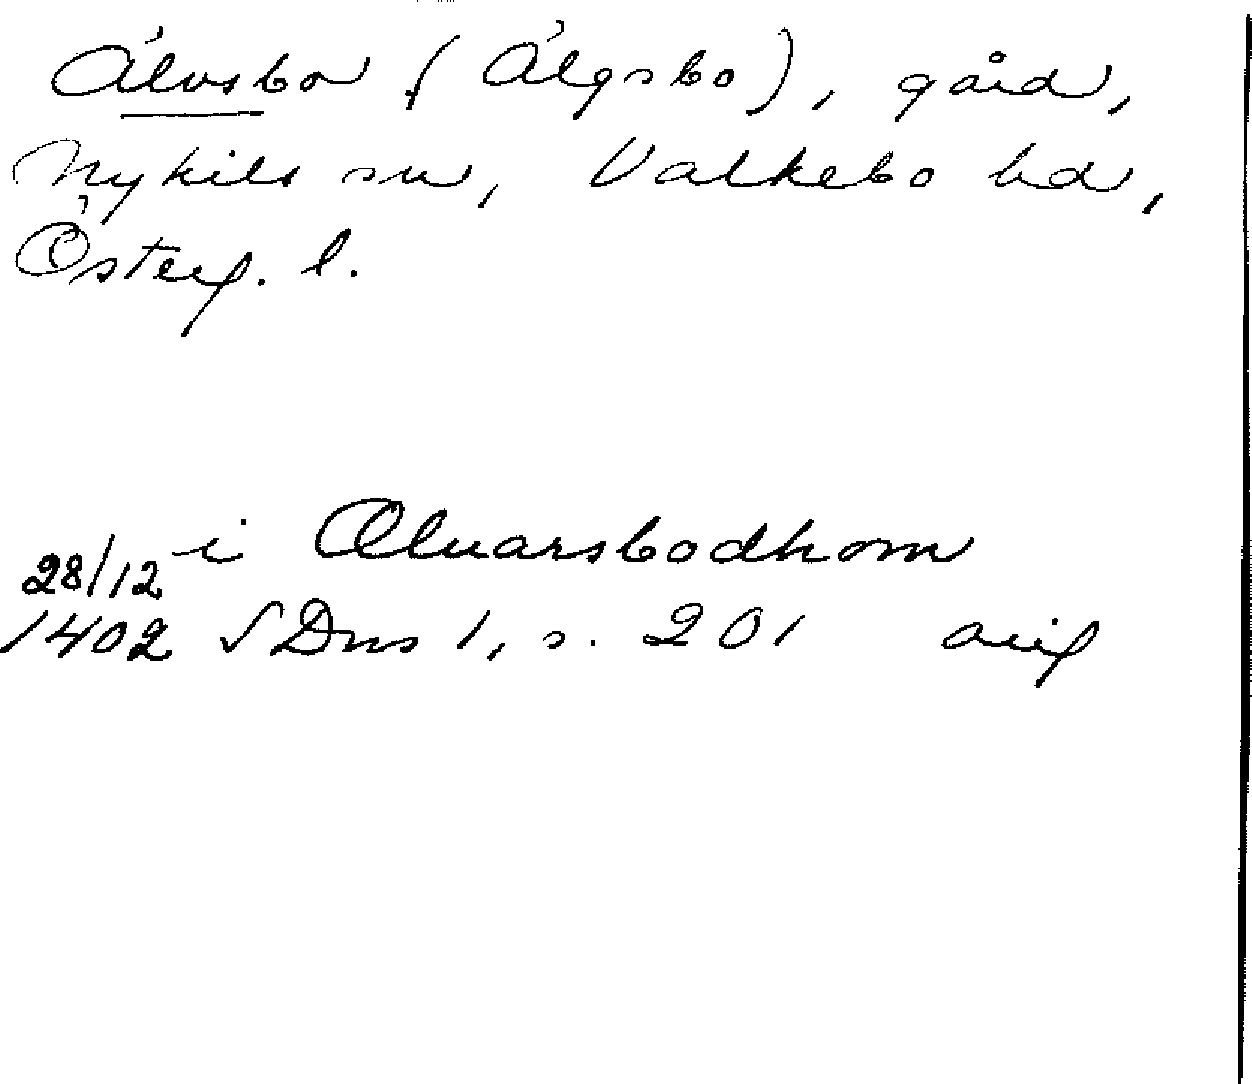 Älvsbo (Älgsbo), gård,
Nykils sn, Valkebo hd,
Österg. l.
i Æluarsbodhom
28/12
1402 SDns 1, s. 201 orig